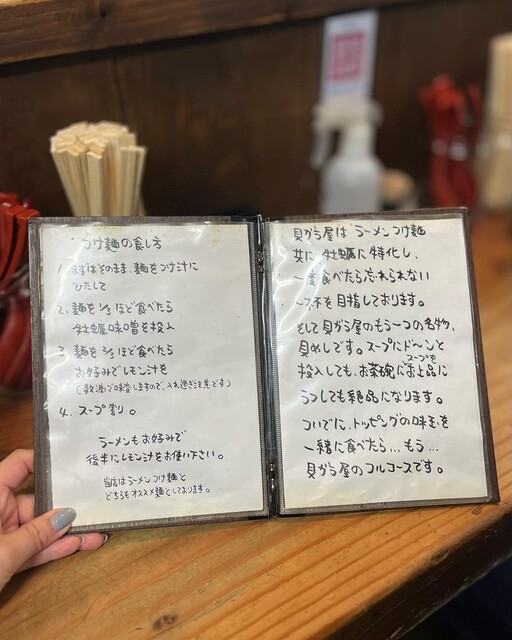 つけ麺の食し方
1. まずはそのまま、麺をつけ汁に
ひたして
2. 麺を1/3ほど食べたら
牡蠣味噌を投入
3. 麺を2/3ほど食べたら
お好みでレモン汁を
(数滴で味変しますので、入れ過ぎ注意です)
4. スープ割り。
ラーメンもお好みで
後半にレモン汁をお使い下さい。
当店はラーメンつけ麺と
どちらもオススメ麺としております。
貝がら屋は ラーメンつけ麺
共に 牡蠣に特化し、
一度食べたら忘れられない
一杯を目指しております。
そして貝がら屋のもう一つの名物、
貝めしです。スープにド〜ンと
投入しても、お茶碗にスープを お上品に
うつしても絶品になります。
ついでに、トッピングの味玉を
一緒に食べたら…もう…
貝がら屋のフルコースです。